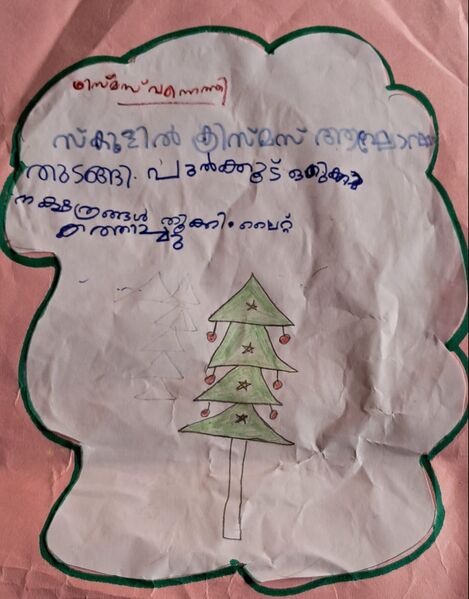 ക്രിസ്മസ് വന്നെത്തി
സ്കൂളിൽ ക്രിസ്മസ് ആഘോഷം
തുടങ്ങി. പുൽക്കൂട് ഒരുക്കി
നക്ഷത്രങ്ങൾ തൂക്കി. ലൈറ്റ്
കത്തിച്ചു